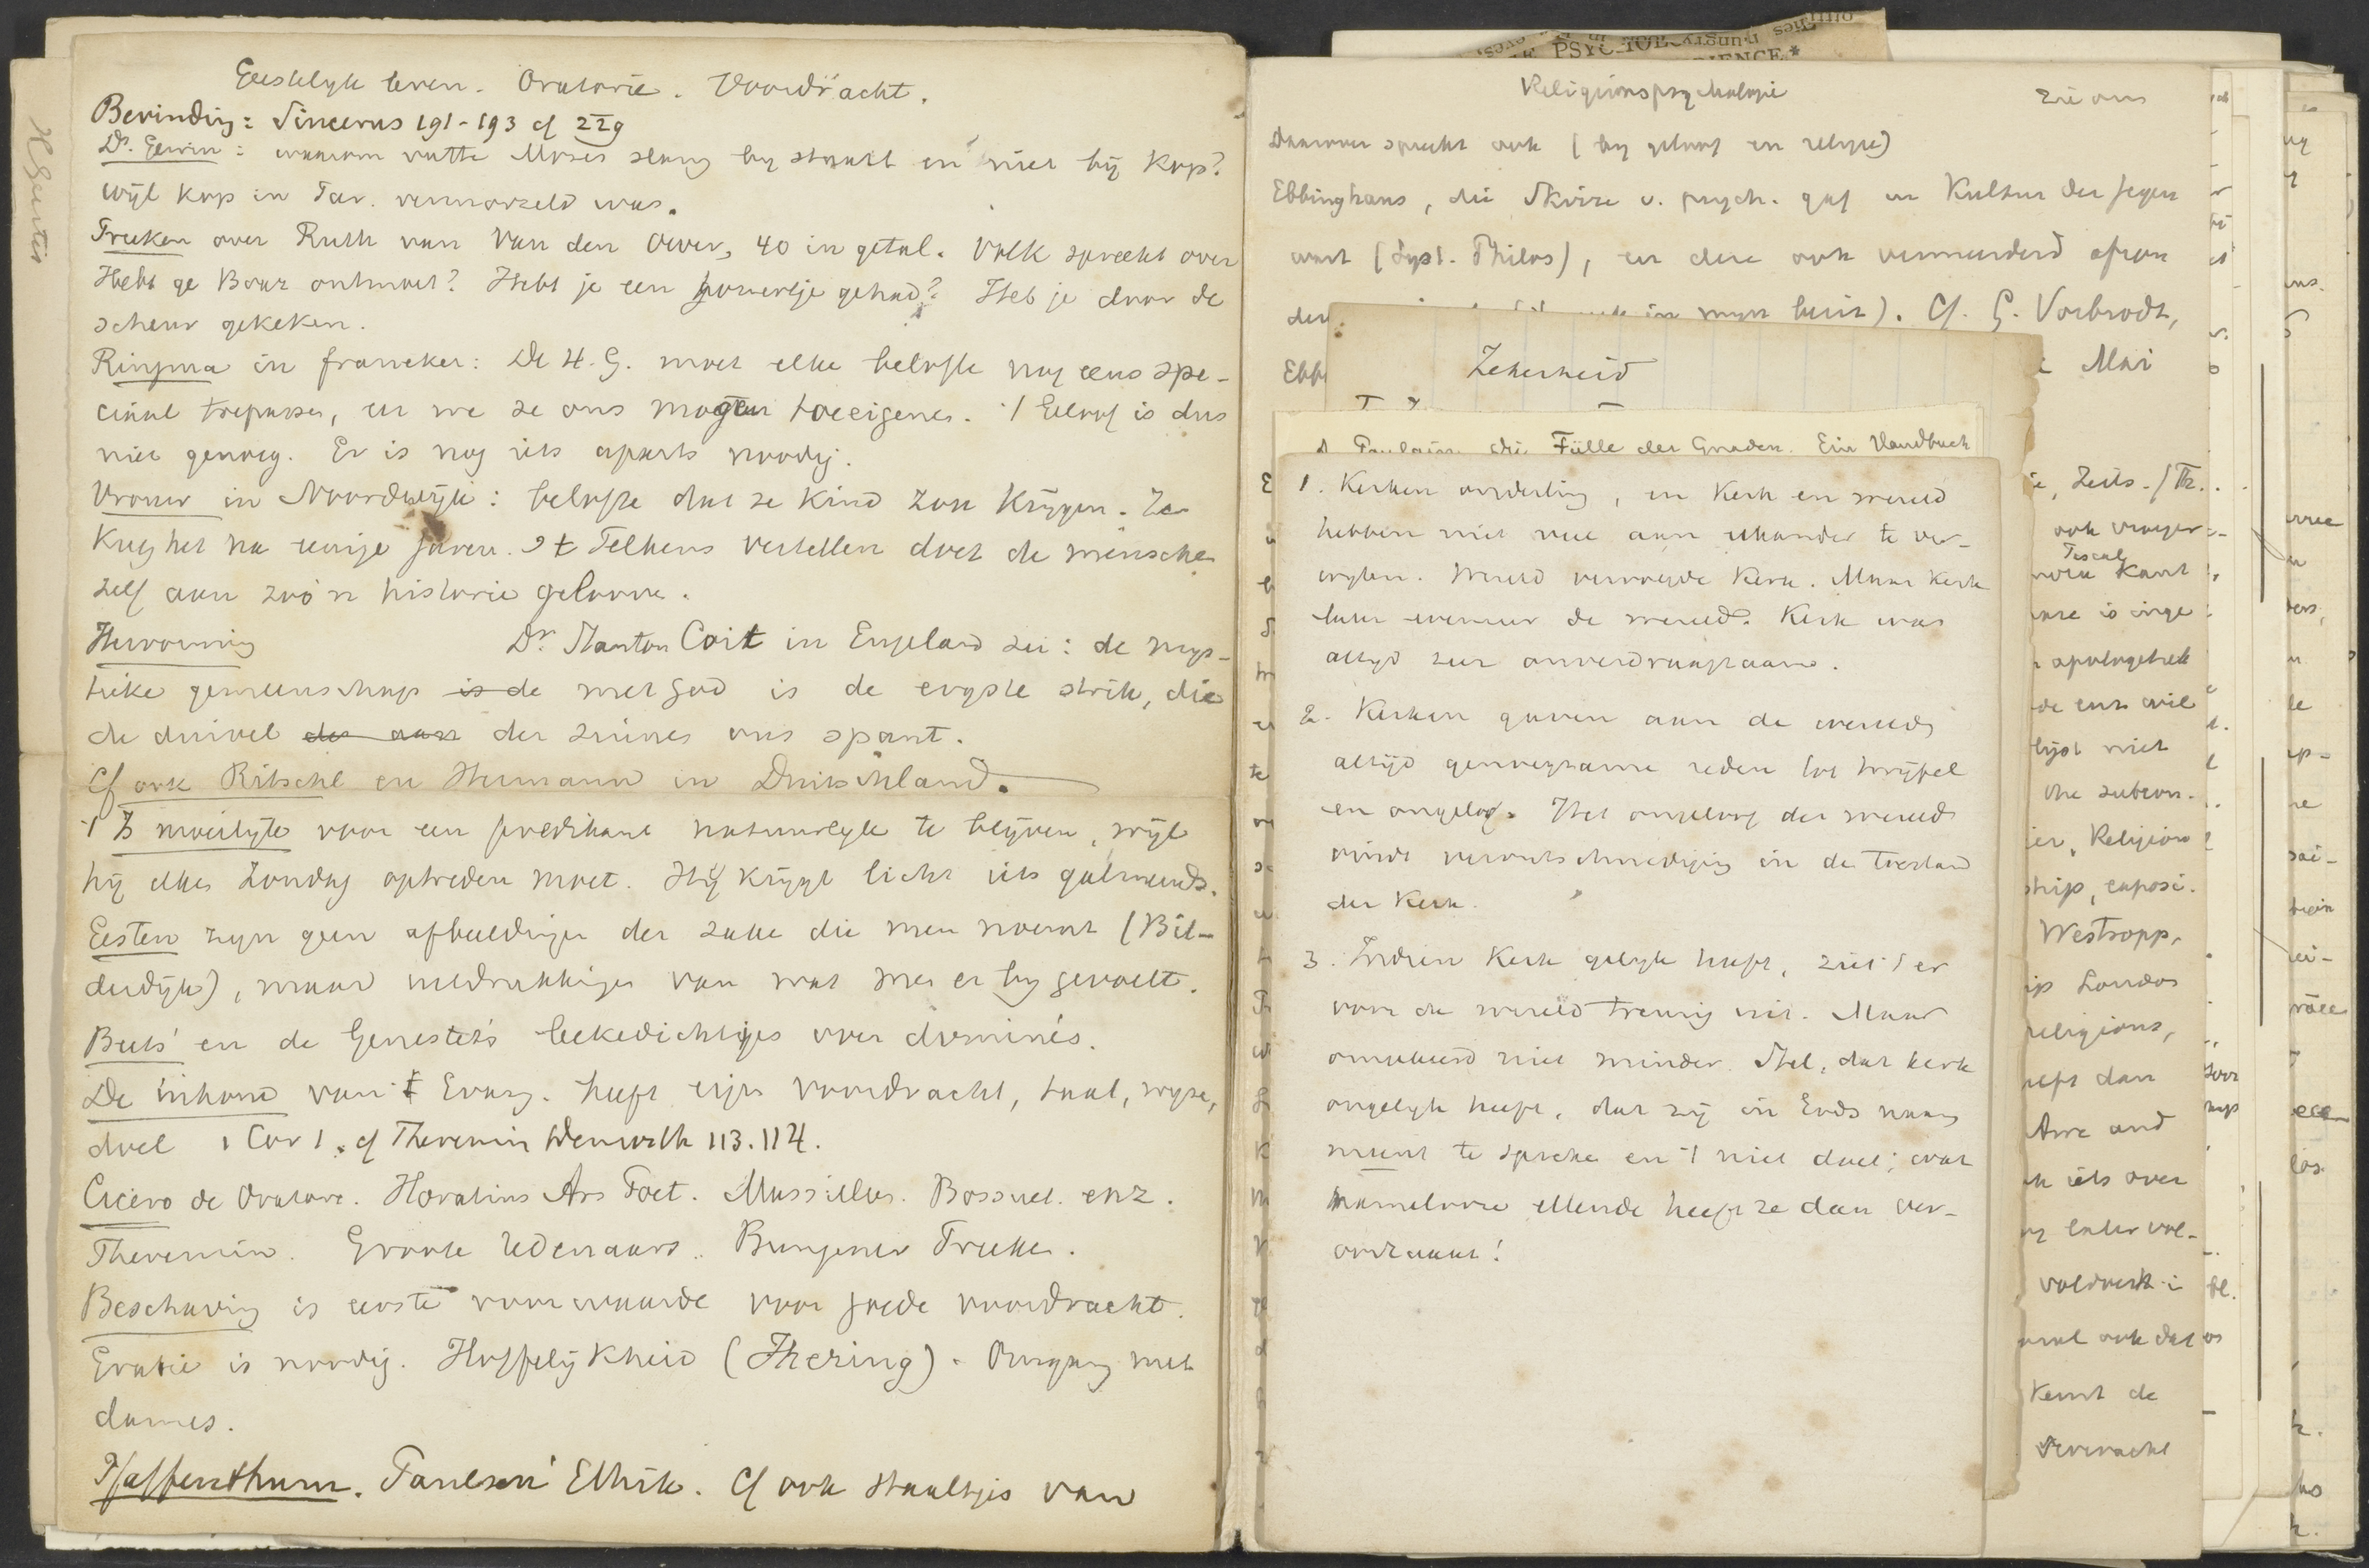 Geestelyk leven. Oratorie. Voordracht.
Bevinding: Sincerus 191-193 cf 229
Ds. Gewin: waarom vatte Mozes slang by staart en niet bij kop?
wijl kop in Par. vermorzeld was.
Preeken over Ruth van Van den Oever, 40 in getal. Volk spreekt over
Hebt ge Boaz ontmoet? Hebt je een korreltje gehad? Heb je door de
scheur gekeken.
Ringma in Franeker: De H.G. moet elke belofte nog eens spe-
ciaal toepassen, eer we ze ons mogen toeeigenen. 't Geloof is dus
niet genoeg. Er is nog iets aparts noodig.
Vrouw in Noordwijk: belofte dat ze kind zou krijgen. Ze
kreeg het na eenige jaren. 't Telkens vertellen doet de menschen
zelf aan zoo'n historie gelooven.
Dr. Stanton Coit in Engeland zei: de mys-
tieke gemeenschap is de met God is de ergste strik, die
de duivel der zinnes ons spant.
Cf ook Ritschl en Hermann in Duitschland.
't Is moeilyk voor een predikant natuurlyk te blijven, wijl
hij elken Zondag optreden moet. Hij krijgt licht iets galmends.
Gesten zyn geen afbeeldingen der zaken die men noemt (Bil-
derdijk), maar uitdrukkingen van wat men er by gevoelt.
Beets' en de Genestet's leekedichtjes over dominé's.
De inhoud van 't Evang. heeft eigen voordracht, taal, wyze,
doel 1 Cor 1. cf Theremin Demosth 113.114.
Cicero de Oratore. Horatius Ars Poet. Massillon. Bossuet. enz.
Theremin. Groote redenaars. Bungener Preeken.
Beschaving is eerste voorwaarde voor goede voordracht.
Gratie is noodig. Hoffelijkheid (Jhering). Omgang met
dames.
Pfaffenthum. Paulsen' Ethik. Cf ook staaltjes van
Religionspsychologie
zie ons
Daarover spreekt ook (by geloof en religie)
Ebbinghaus, die Skizze v. psych. gaf in Kultur der Gegen
wart (Syst. Philos), en deze ook vermeerderd afzon
in myn bezit). Cf. G. Vorbrodt,
Mai
Zekerheid
die Fülle der Gnaden. Ein Handbuch
1. Kerken onderling, en kerk en wereld
hebben niet veel aan elkander te ver-
wyten. Wereld vervolgde kerk. Maar kerk
evenzeer de wereld. Kerk was
altyd zeer onverdraagzaam.
2. Kerken gaven aan de wereld
altijd genoegzame reden tot twijfel
en ongeloof. Het ongeloof der wereld
vindt verontschuldiging in de toestand
der Kerk.
3. Indien Kerk gelyk heeft, ziet 't er
voor de wereld treurig uit. Maar
omgekeerd niet minder. Stel, dat kerk
ongelyk heeft, dat zij in Gods naam
meent te spreken en 't niet doet; wat
namelooze ellende heeft ze dan ver-
oorzaakt!
ook vroeger
Pascal
Kant
apologetiek
Religion
ship, exposi.
Westropp,
London
religions,
and
iets over
Kent de